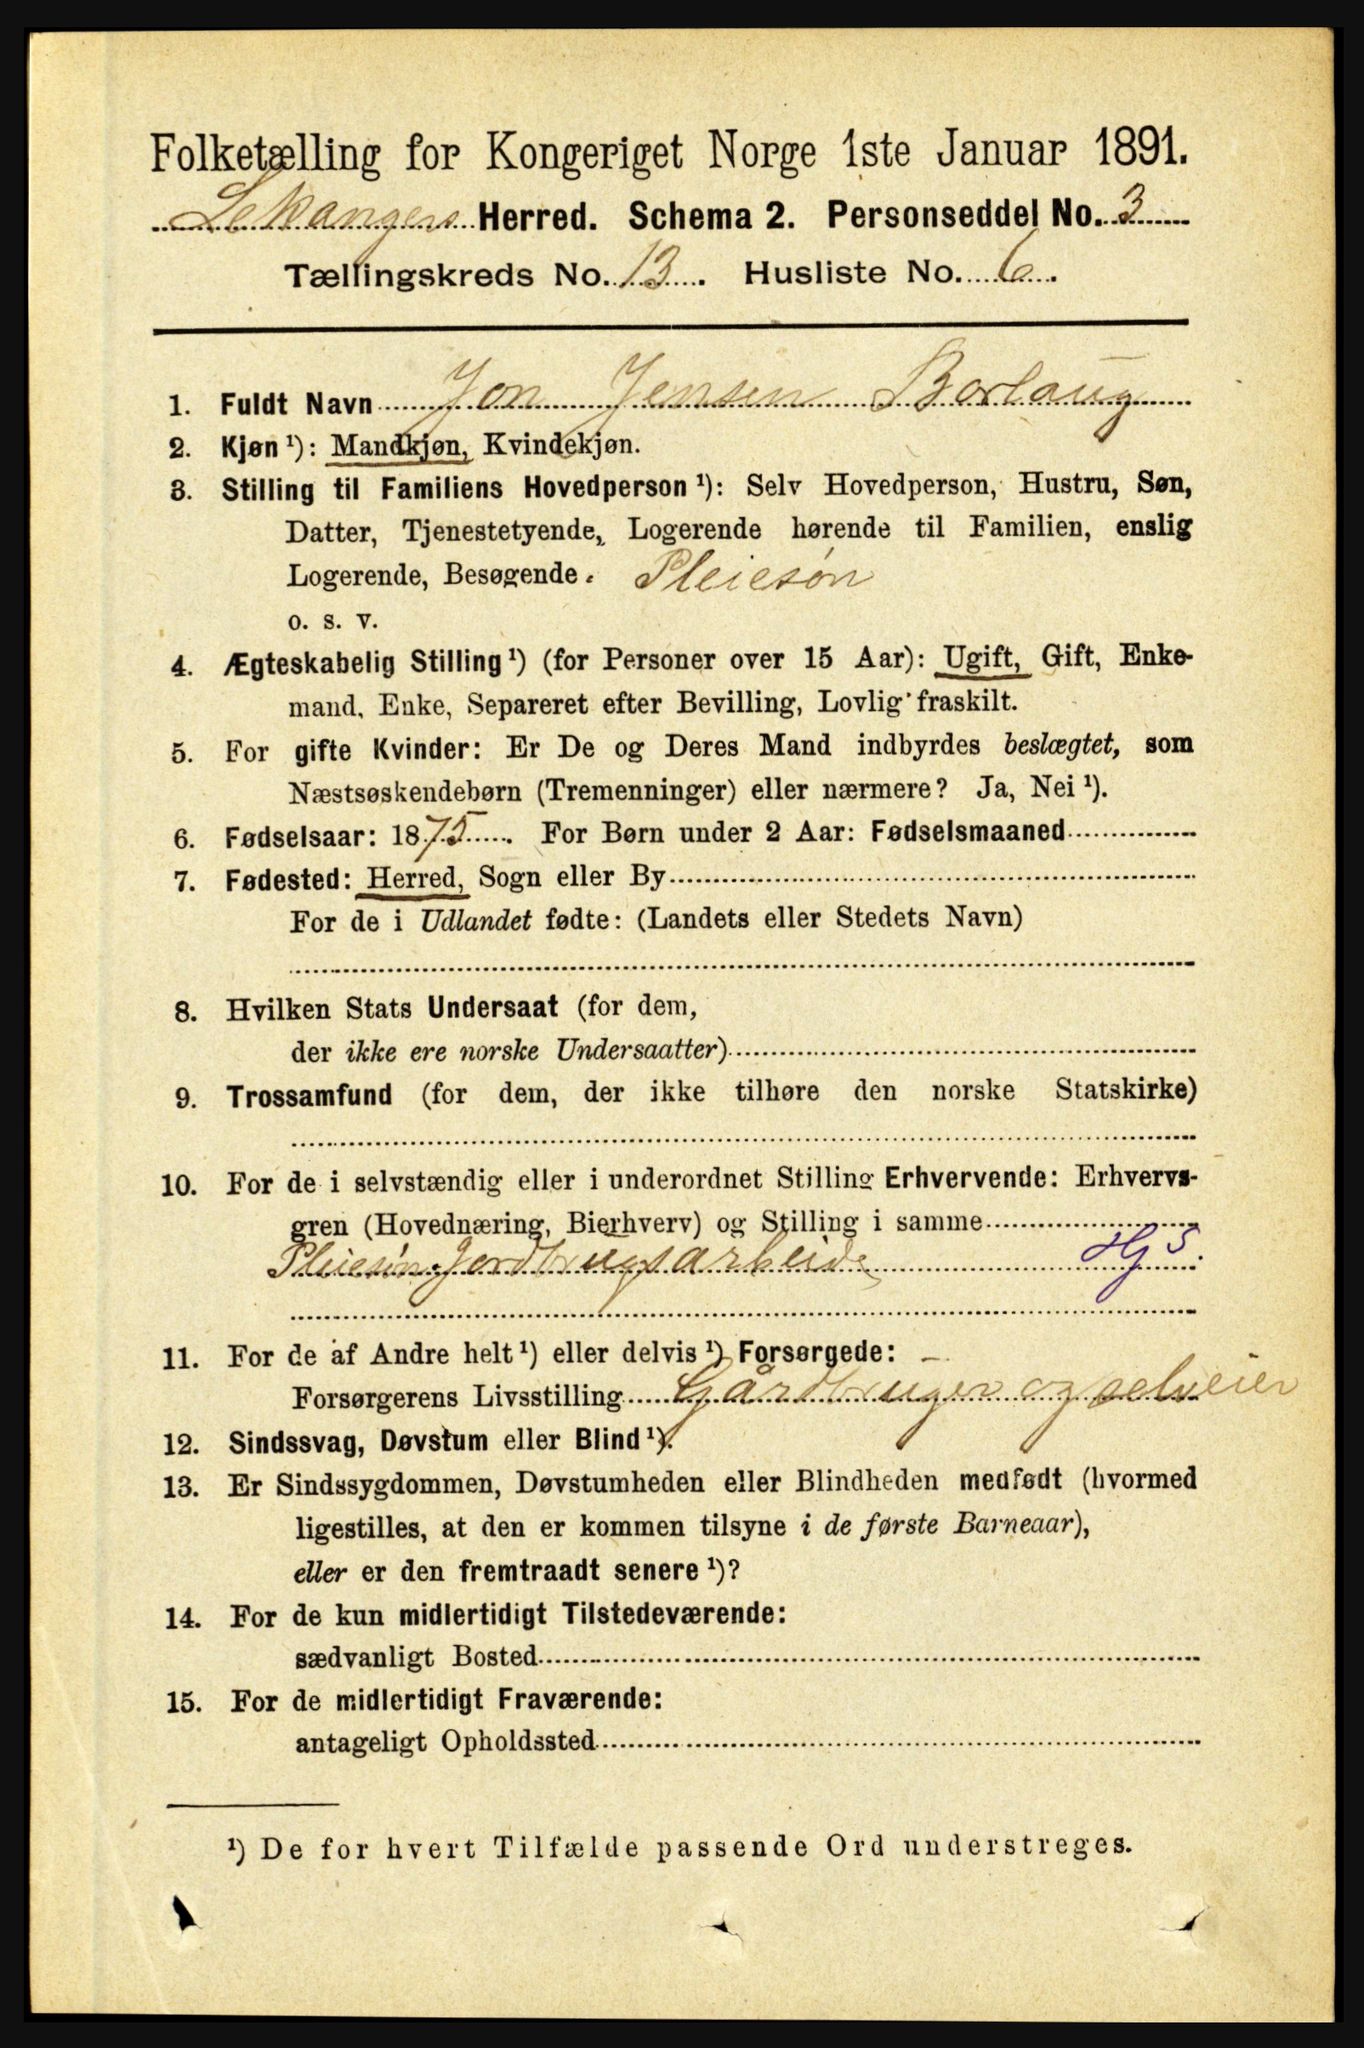 Folketælling for Kongeriget Norge 1ste Januar 1891.
Lekangers Herred. Schema 2. Personseddel No. 3
Tællingskreds No. 13. Husliste No. 6.
1. Fuldt Navn Jon Jensen Borlaug
2. Kjøn ¹): Mandkjøn, Kvindekjøn.
3. Stilling til Familiens Hovedperson ¹): Selv Hovedperson, Hustru, Søn,
Datter, Tjenestetyende, Logerende hørende til Familien, enslig
Logerende, Besøgende. Pleiesøn
o. s. v.
4. Ægteskabelig Stilling ¹) (for Personer over 15 Aar): Ugift, Gift, Enke-
mand, Enke, Separeret efter Bevilling, Lovlig fraskilt.
5. For gifte Kvinder: Er De og Deres Mand indbyrdes beslægtet, som
Næstsøskendebørn (Tremenninger) eller nærmere? Ja, Nei ¹).
6. Fødselsaar: 1875. For Børn under 2 Aar: Fødselsmaaned
7. Fødested: Herred, Sogn eller By
For de i Udlandet fødte: (Landets eller Stedets Navn)
8. Hvilken Stats Undersaat (for dem,
der ikke ere norske Undersaatter)
9. Trossamfund (for dem, der ikke tilhøre den norske Statskirke)
10. For de i selvstændig eller i underordnet Stilling Erhvervende: Erhvervs-
gren (Hovednæring, Bierhverv) og Stilling i samme
Pleiesøn. Jordbrugsarbeide Hj S.
11. For de af Andre helt ¹) eller delvis ¹) Forsørgede: -
Forsørgerens Livsstilling Gårdbruger og selveier
12. Sindssvag, Døvstum eller Blind ¹).
13. Er Sindssygdommen, Døvstumheden eller Blindheden medfødt (hvormed
ligestilles, at den er kommen tilsyne i de første Barneaar),
eller er den fremtraadt senere ¹)?
14. For de kun midlertidigt Tilstedeværende:
sædvanligt Bosted
15. For de midlertidigt Fraværende:
antageligt Opholdssted
¹) De for hvert Tilfælde passende Ord understreges.